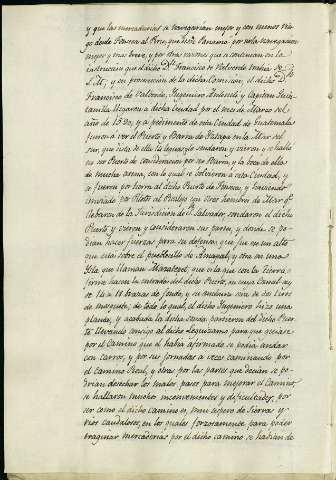 y que las mercadurias se navegarian mejor y con menos ries-
go desde Fonseca al Piru, que desde Panama, por ser la navegacion
mejor y mas breve, y por otras razones que se contenian en la
instruccion que el dicho D.n Francisco de Valverde trahia de
S.M; y en prosecucion de la dicha Comision, el dicho D.n
Francisco de Valverde, Ingeniero Antoneli, y Capitan
llegaron a dicha Ciudad por el mes de Marzo del
año de 1590, y a pedimento de esta Ciudad de Guatemala
fueron a ver el Puerto y Barra de Istapa en la Mar del
sur, que dista de ella leguas y lo sondaron y vieron y se hallo
no ser Puerto de consideracion por ser Barra, y la boca de ella
de mucha arena, con lo qual se volvieron a esta Ciudad, y
se fueron por tierra al dicho Puerto de Fonseca, y haviendo
embiado por Piloto al Realejo y a otros hombres de Mar q.e
llebaron de la Jurisdicion de S. Salvador, sondaron el dicho
Puerto, y vieron y consideraron sus partes, y donde se po-
dian hacer fuerzas para su defensa, que fue en un alto
que esta sobre el pueblesillo de Amapal, y otra en una
Ysla que llaman Mazatepet, que es la que con la tierra
firme hacen la entrada del dicho Puerto, en cuya Canal ay
se de largo, de todo lo qual el dicho Ingeniero hizo una
planta, y acabada la dicha sonda, partieron del dicho Puer-
to llevando consigo al dicho Leguizamo para que guiase
por el Camino que el habia afirmado se podia andar
con carros, y por sus jornadas a veces caminando por
el camino Real, y otras por las partes que decian se po-
drian desechar los malos pasos para mejorar el Camino
se hallaron muchos inconvenientes y dificultades, por
ser como el dicho camino es, muy aspero de Sierras y
rios caudalosos, en los quales forzosamente para poder
traginar mercaderias por el dicho camino se habian de